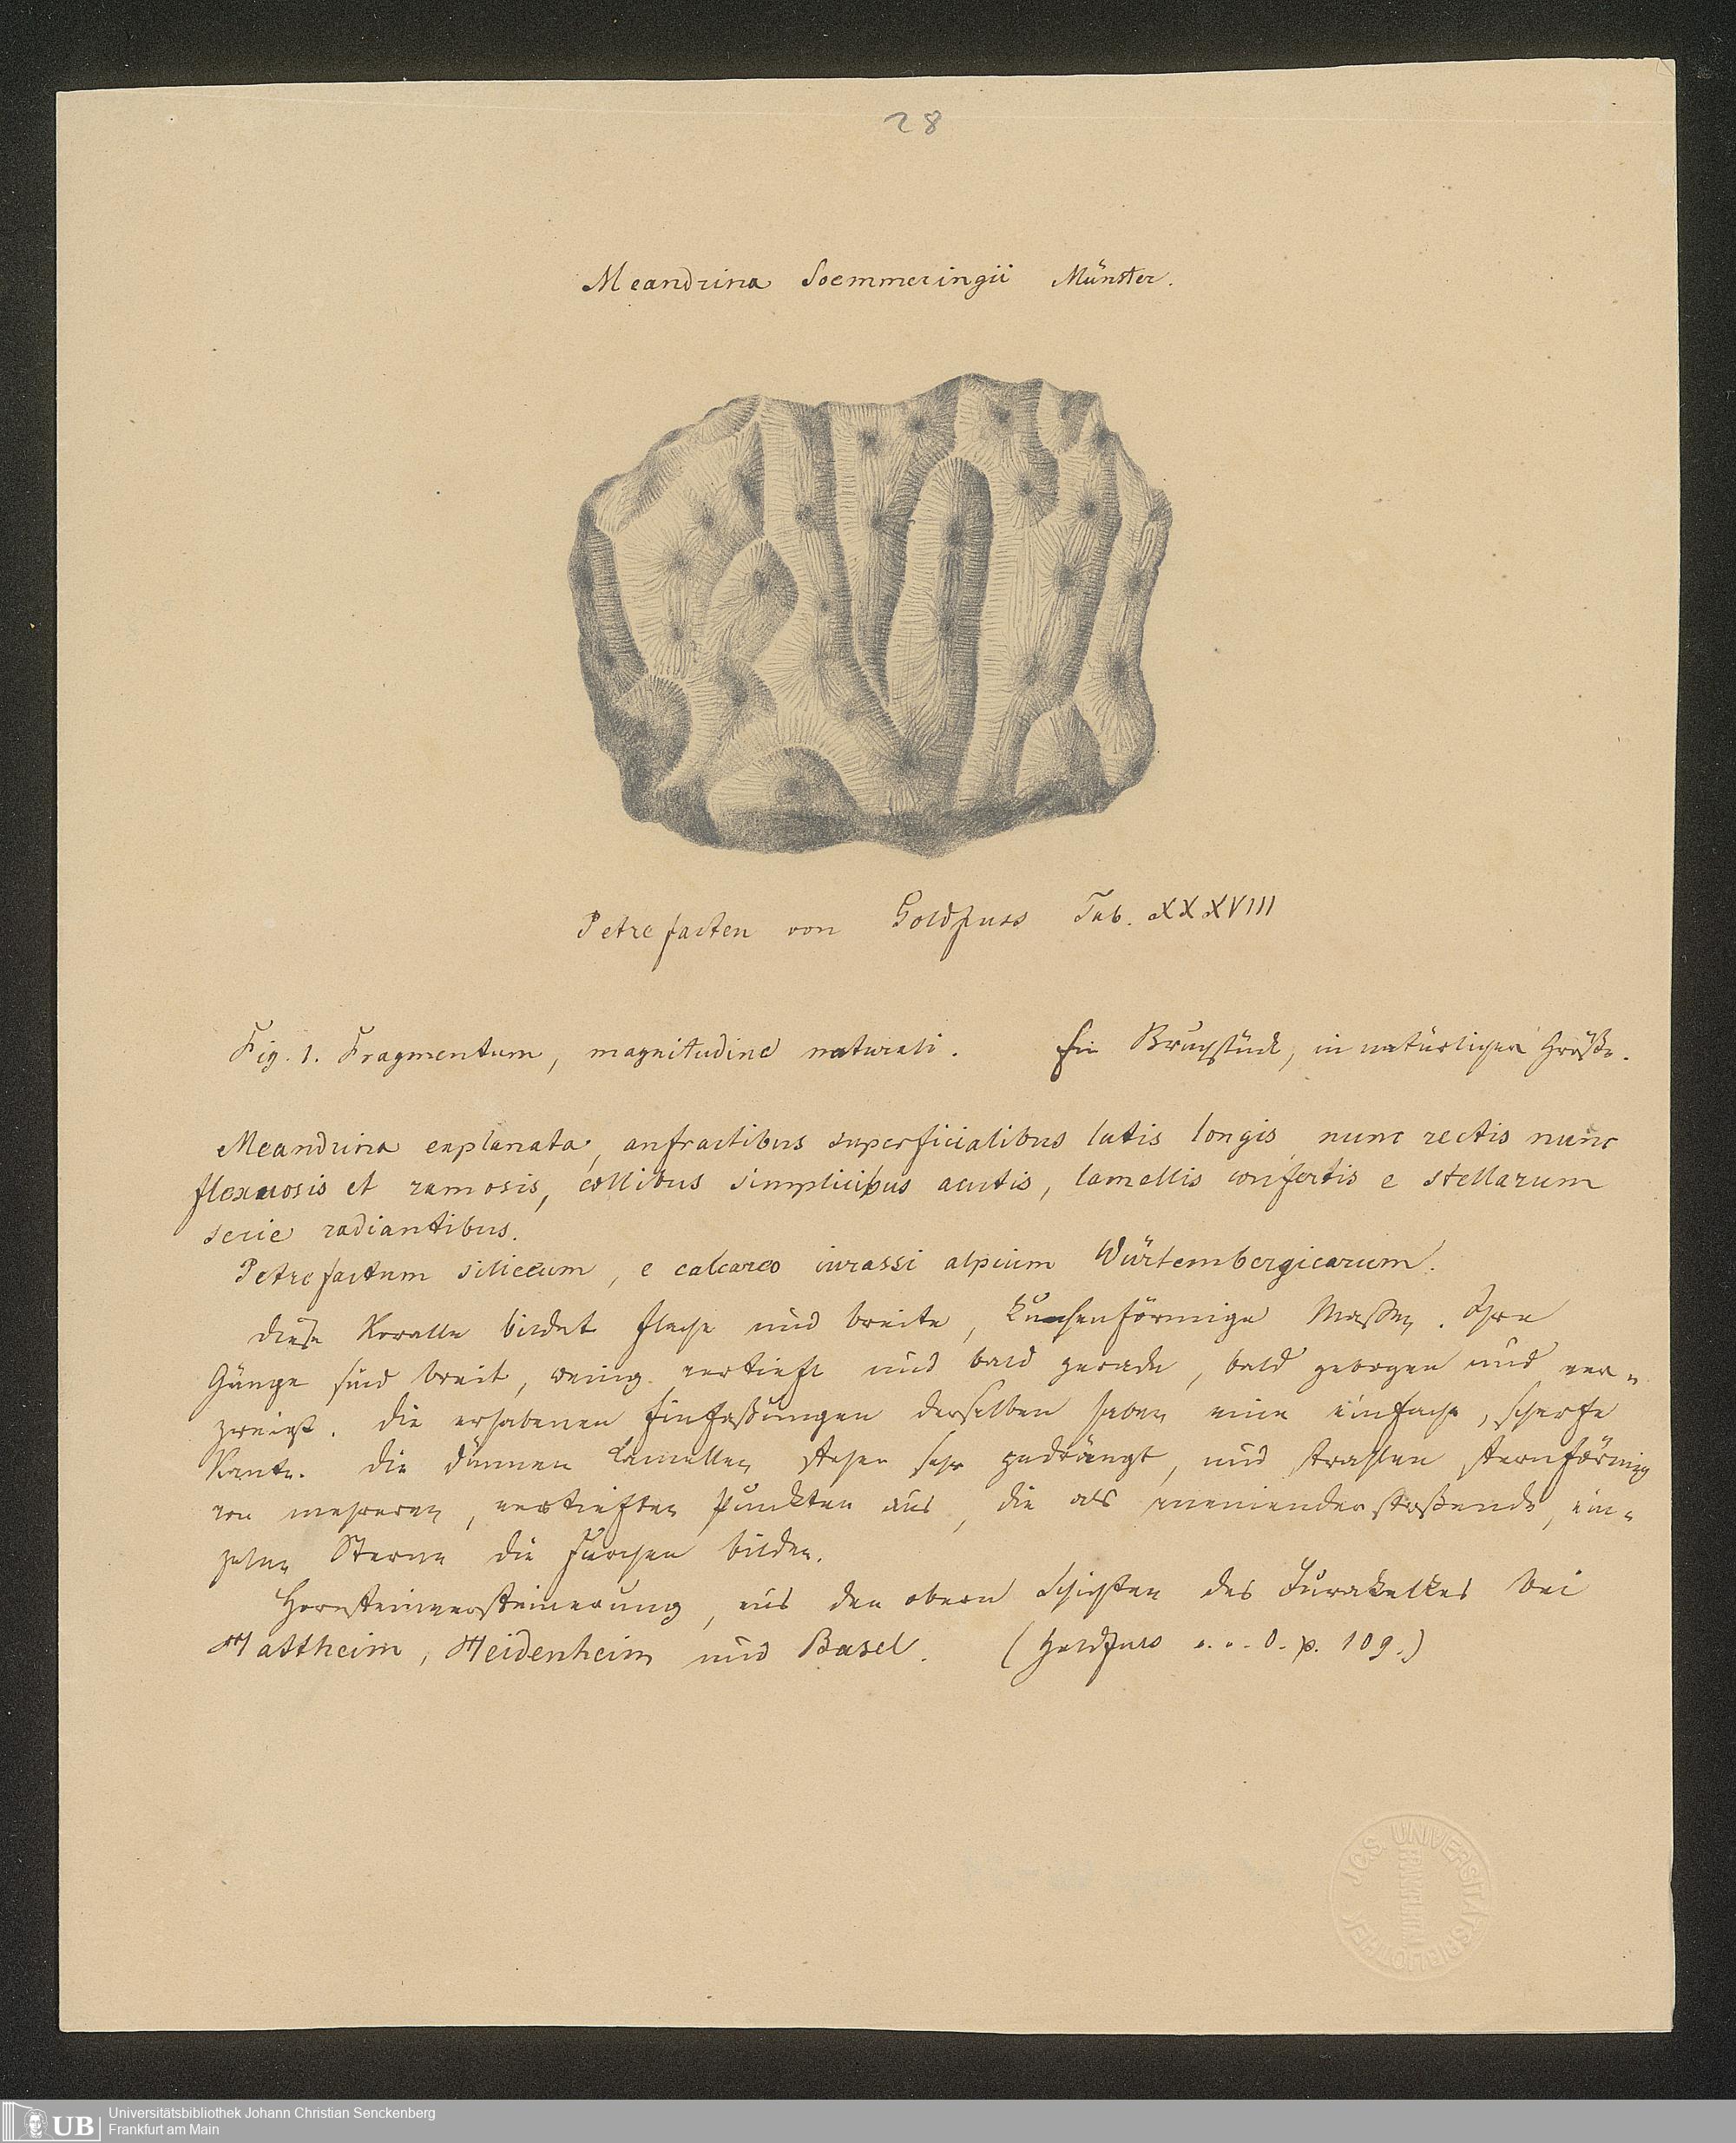 28
Meandrina Soemmeringii Münster.
Petrefacten von Goldfuss Tab. XXXVIII
Fig. 1. Fragmentum, magnitudine naturali. Ein Bruchstück, in natürlicher Größe.
Meandrina explanata, anfractibus superficialibus latis longis nunc rectis nunc
flexuosis et ramosis, collibus simplicibus acutis, lamellis confertis e stellarum
serie radiantibus.
Petrefactum siliceum, e calcareo iurassi alpium Würtembergicarum.
Diese Koralle bildet flache und breite, kuchenförmige Maßen. Ihre
Gänge sind breit, wenig vertieft und bald gerade, bald gebogen und ver-
zweigt. Die erhabenen Einfaßungen derselben haben eine einfache, scharfe
Kante. Die dünnen Lamellen stehen sehr gedrängt, und strahlen sternförmig
von mehreren, vertieften Punkten aus, die als aneinanderstoßende, ein-
zelne Sterne die Furchen bilden.
Hornsteinversteinerung, aus den obern Schichten des Jurakalkes bei
Hattheim, Heidenheim und Basel. (Goldfuss a. a. O. p. 109.)
J.C.S. UNIVERSITÄTSBIBLIOTHEK
FRANKFURT
UB
Universitätsbibliothek Johann Christian Senckenberg
Frankfurt am Main